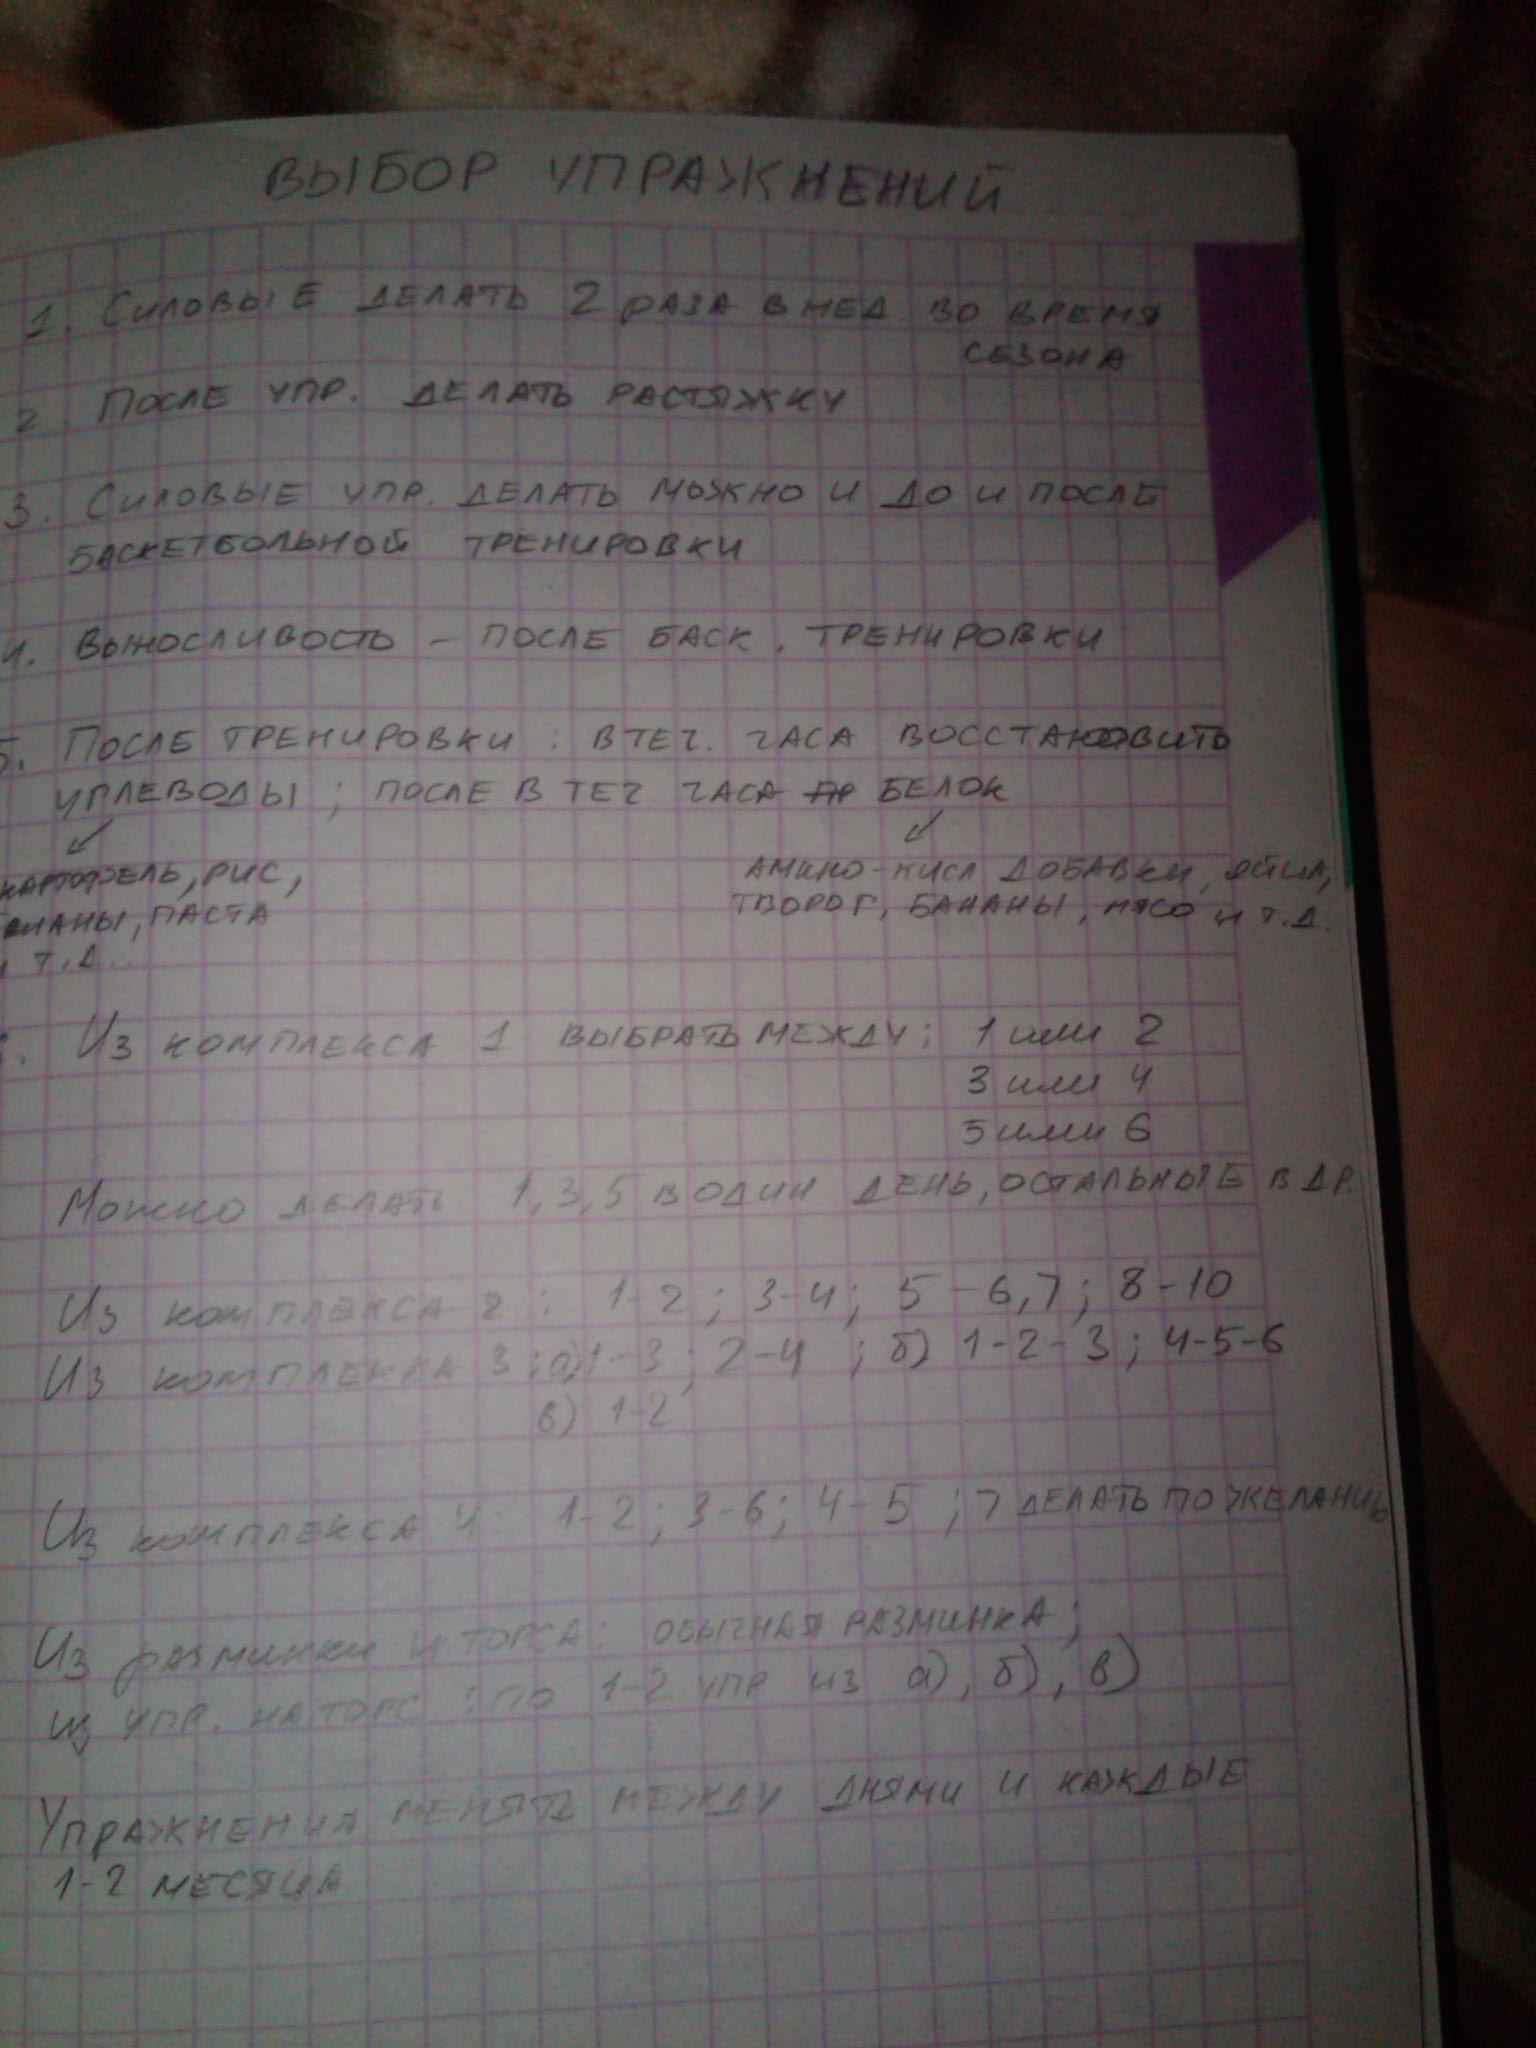 ВЫБОР УПРАЖНЕНИЙ
1. СИЛОВЫЕ ДЕЛАТЬ 2 РАЗА В НЕД. ВО ВРЕМЯ
СЕЗОНА
2 ПОСЛЕ УПР. ДЕЛАТЬ РАСТЯЖКУ
3. СИЛОВЫЕ УПР. ДЕЛАТЬ МОЖНО И ДО И ПОСЛЕ
БАСКЕТБОЛЬНОЙ ТРЕНИРОВКИ
4. ВЫНОСЛИВОСТЬ – ПОСЛЕ БАСК. ТРЕНИРОВКИ
5. ПОСЛЕ ТРЕНИРОВКИ: В ТЕЧ. ЧАСА ВОССТАНОВИТЬ
УГЛЕВОДЫ; ПОСЛЕ В ТЕЧ ЧАСА БЕЛОК
КАРТОФЕЛЬ, РИС,
ПАСТА
И Т.Д..
АМИНО-КИСЛ ДОБАВКИ, ЯЙЦА,
ТВОРОГ, БАНАНЫ, МЯСО И Т.Д.
ИЗ КОМПЛЕКСА 1 ВЫБРАТЬ МЕЖДУ: 1 ИЛИ 2
3 ИЛИ 4
5 ИЛИ 6
МОЖНО ДЕЛАТЬ 1, 3, 5 В ОДИН ДЕНЬ, ОСТАЛЬНЫЕ В ДР.
ИЗ КОМПЛЕКСА 2: 1-2; 3-4; 5-6,7; 8-10
ИЗ КОМПЛЕККА 3: а) 1-3; 2-4; б) 1-2-3; 4-5-6
в) 1-2
ИЗ КОМПЛЕКСА 4: 1-2; 3-6; 4-5; 7 ДЕЛАТЬ ПО ЖЕЛАНИЮ
ИЗ РАЗМИНКИ И ТОРСА: ОБЫЧНАЯ РАЗМИНКА;
ИЗ УПР. НА ТОРС: ПО 1-2 УПР ИЗ а), б), в)
УПРАЖНЕНИЯ МЕНЯТЬ МЕЖДУ ДНЯМИ И КАЖДЫЕ
1-2 МЕСЯЦА